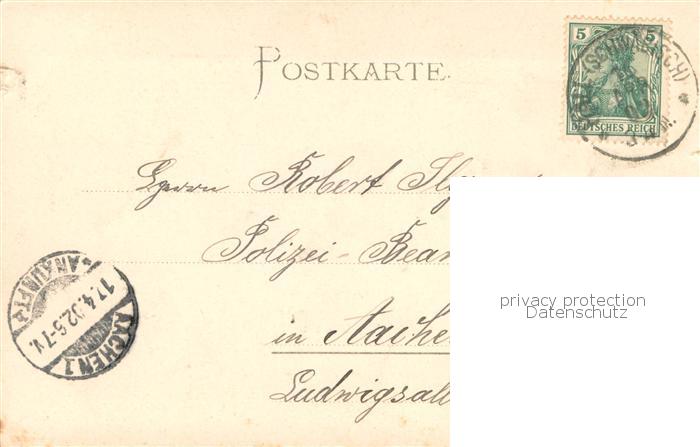 POSTKARTE.
5 5
DEUTSCHES REICH
Herrn Robert
Polizei-Bean
in Aache
Ludwigsall
ANKUNFT
17.4.02.6-7V.
AACHEN 1
privacy protection
Datenschutz